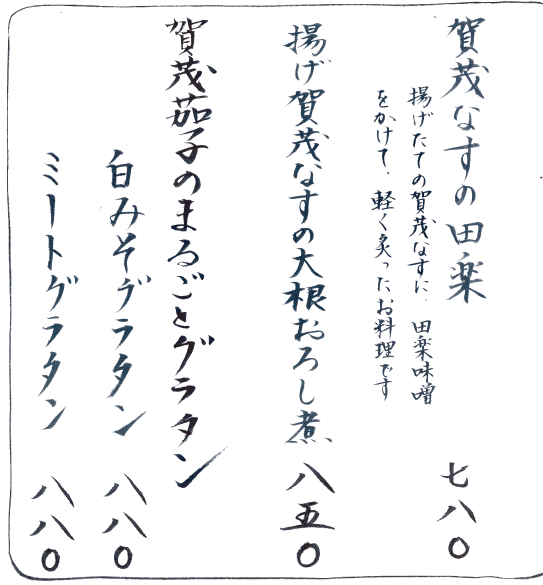 賀茂なすの田楽
揚げたての賀茂なすに、田楽味噌
をかけて、軽く炙ったお料理です
七八〇
揚げ賀茂なすの大根おろし煮
八五〇
賀茂茄子のまるごとグラタン
白みそグラタン
八八〇
ミートグラタン
八八〇